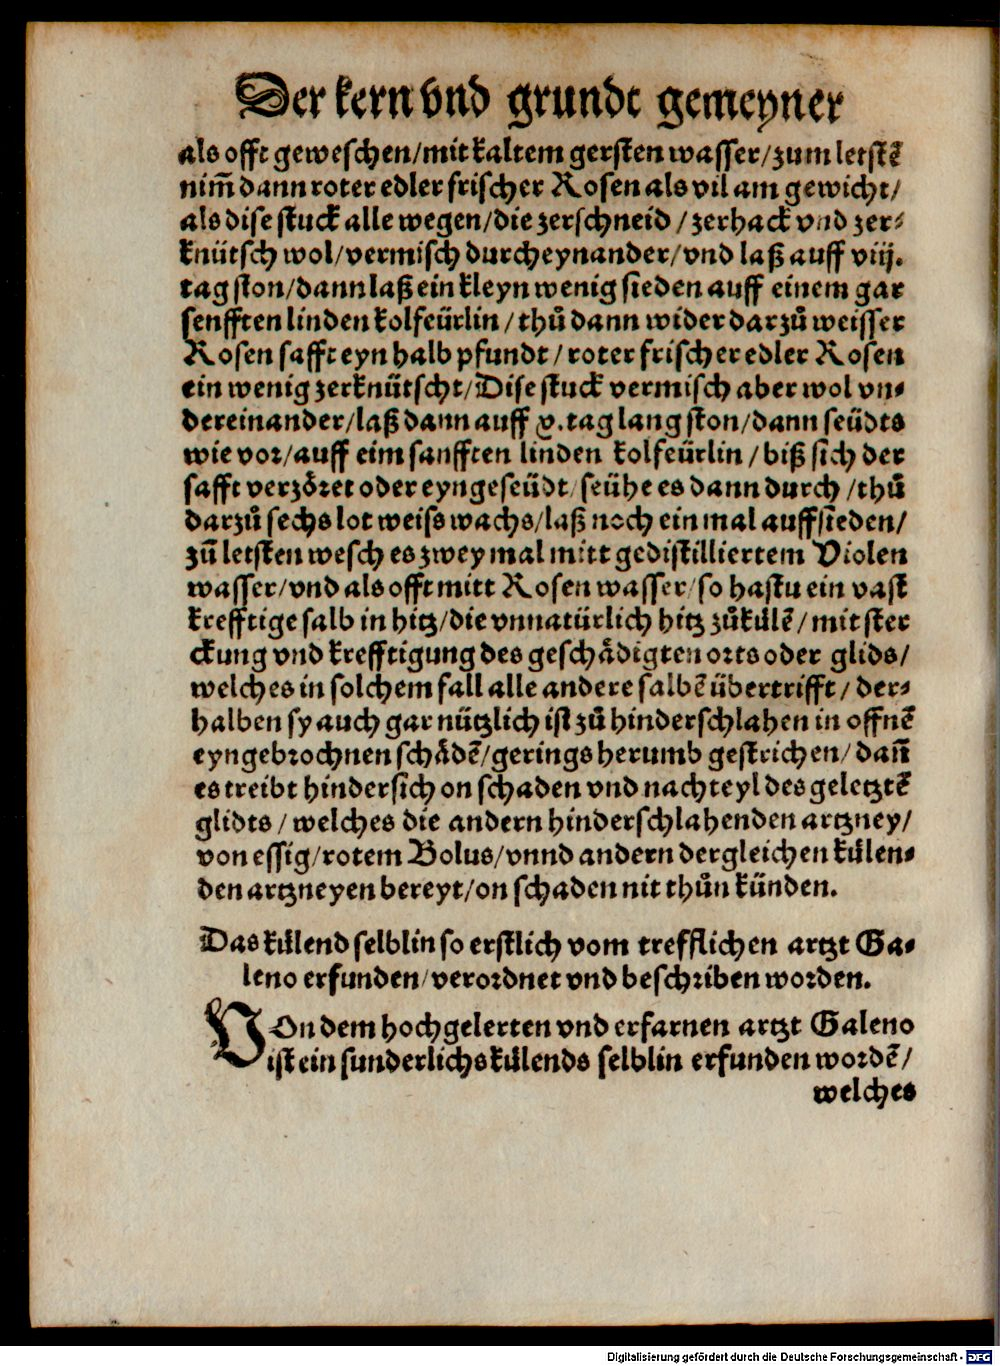 Der kern vnd grundt gemeyner
als offt geweschen/mit kaltem gersten wasser/zum letstē
nim̄ dann roter edler frischer Rosen als vil am gewicht/
als dise stuck alle wegen/die zerschneid / zerhack vnd zer⸗
knütsch wol/vermisch durcheynander/vnd laß auff viij.
tag ston/dann laß ein kleyn wenig sieden auff einem gar
senfften linden kolfeürlin / thů dann wider darzů weisser
Rosen safft eyn halb pfundt / roter frischer edler Rosen
ein wenig zerknütscht/Dise stuck vermisch aber wol vn⸗
dereinander/laß dann auff v. tag lang ston/dann seüdts
wie vor/auff eim sanfften linden kolfeürlin / biß sich der
safft verzöret oder eyngeseüdt/seühe es dann durch /thů
darzů sechs lot weiss wachs/laß noch ein mal auffsieden/
zů letsten wesch es zwey mal mitt gedistilliertem Violen
wasser/vnd als offt mitt Rosen wasser/so hastu ein vast
krefftige salb in hitz/die vnnatürlich hitz zůkülē/mit ster
ckung vnd krefftigung des geschädigten orts oder glids/
welches in solchem fall alle andere salbē übertrifft/ der⸗
halben sy auch gar nützlich ist zů hinderschlahen in offnē
eyngebrochnen schädē/gerings herumb gestrichen/ dan̄
es treibt hindersich on schaden vnd nachteyl des geletztē
glidts / welches die andern hinderschlahenden artzney/
von essig/rotem Bolus/vnnd andern dergleichen külen⸗
den artzneyen bereyt/on schaden nit thůn künden.
Das külend selblin so erstlich vom trefflichen artzt Ga⸗
leno erfunden/verordnet vnd beschriben worden.
VOn dem hochgelerten vnd erfarnen artzt Galeno
ist ein sunderlichs külends selblin erfunden wordē/
welches
Digitalisierung gefördert durch die Deutsche Forschungsgemeinschaft - DFG